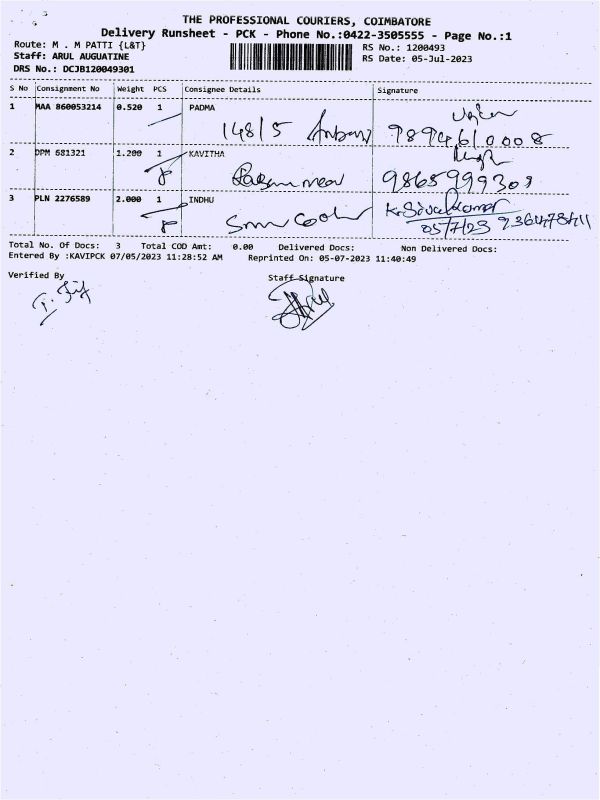 THE PROFESSIONAL COURIERS, COIMBATORE
Delivery Runsheet - PCK - Phone No.:0422-3505555 - Page No.:1
Route: M . M PATTI {L&T}
RS No.: 1200493
Staff: ARUL AUGUATINE
RS Date: 05-Jul-2023
DRS No.: DCJB120049301
S No Consignment No Weight PCS Consignee Details Signature
1 MAA 860053214 0.520 1 PADMA
148/5
9894610008
2 DPM 681321 1.200 1 KAVITHA
9865999309
3 PLN 2276589 2.000 1 INDHU
K. Sivakumar
05/7/23
Total No. Of Docs: 3 Total COD Amt: 0.00 Delivered Docs: Non Delivered Docs:
Entered By :KAVIPCK 07/05/2023 11:28:52 AM Reprinted On: 05-07-2023 11:40:49
Verified By Staff Signature